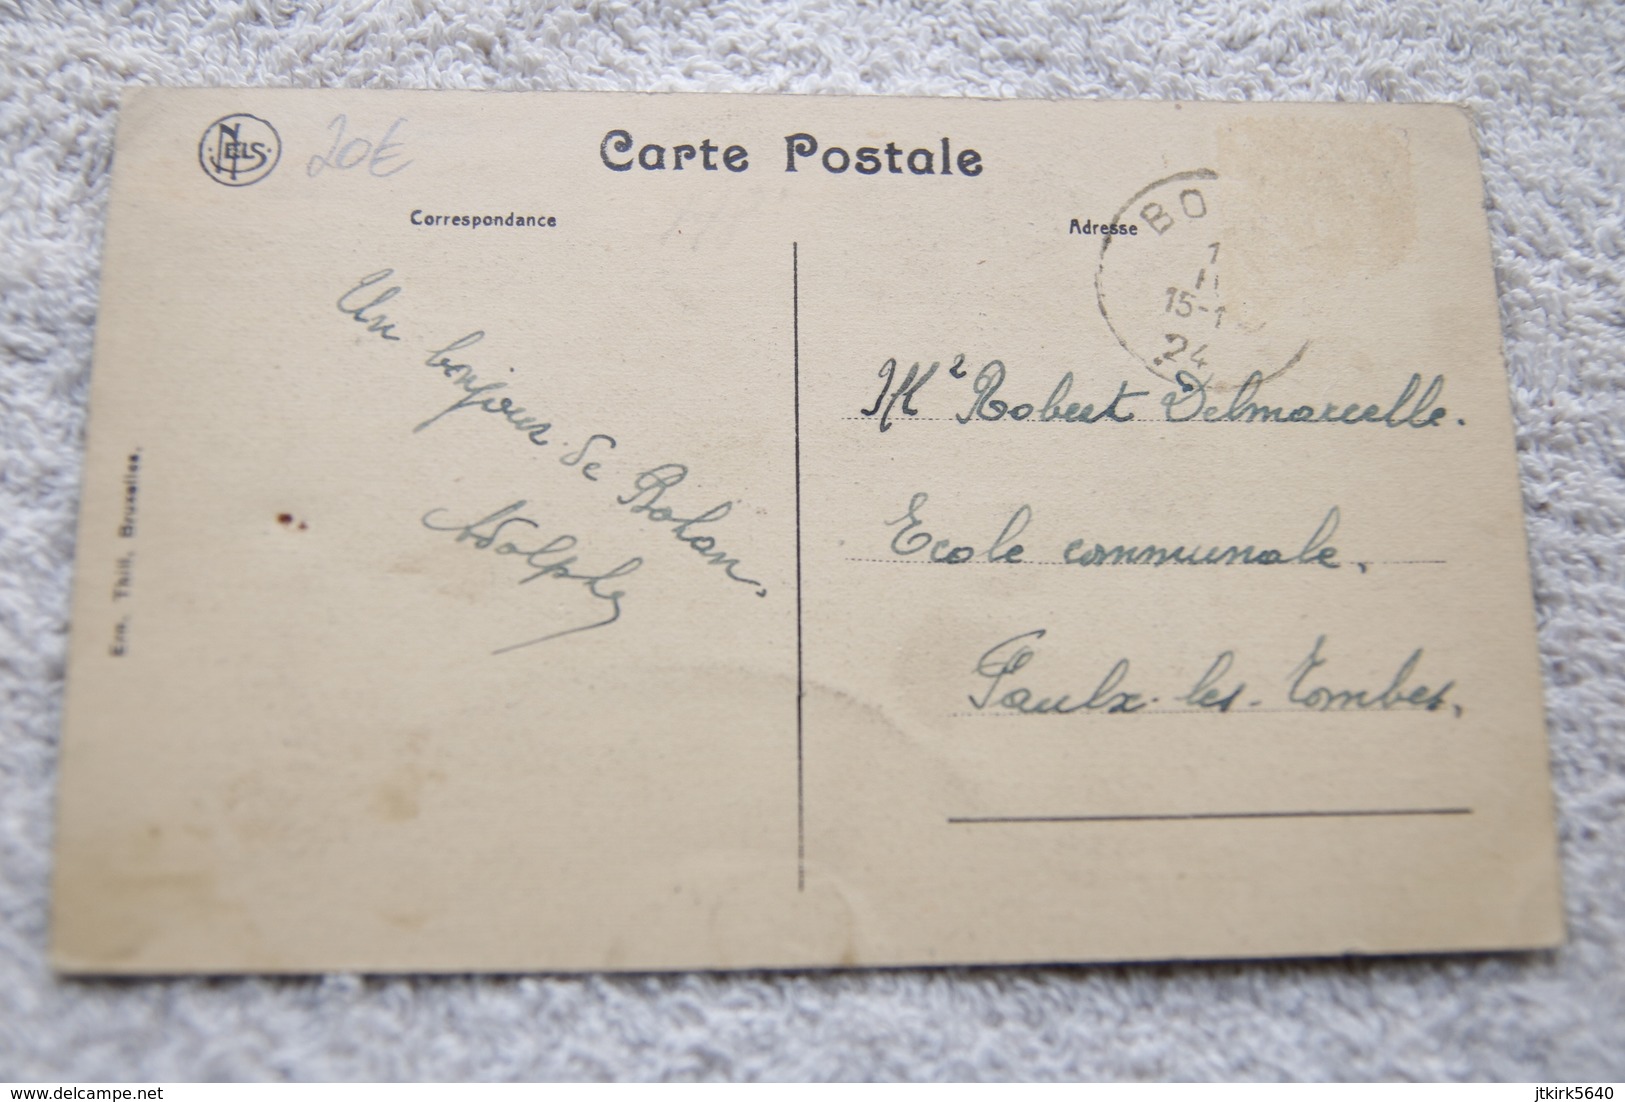 NELS
20€
Carte Postale
Correspondance
Adresse
BO
1
II
15-1
24
Un bonjour de Bohan.
Adolphe
Mr Robert Delmarcelle.
Ecole communale.
Faulx-les-Tombes.
Ern. Thill, Bruxelles.
www.delcampe.net
jtkirk5640